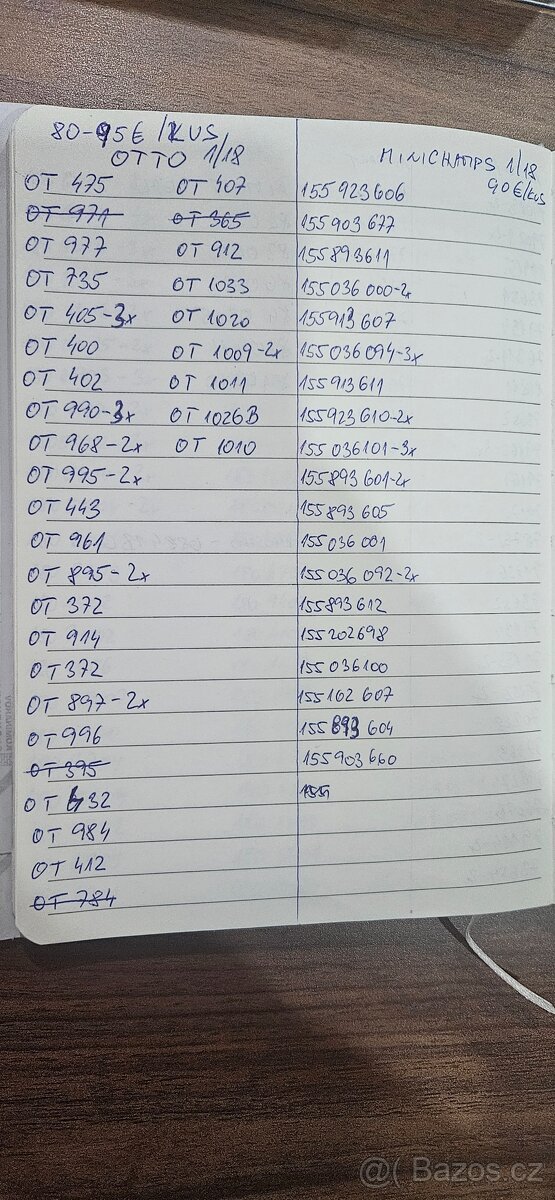 80-95€/KUS
OTTO 1/18
OT 475 OT 407
OT 971 OT 365
OT 977 OT 912
OT 735 OT 1033
OT 405-3x OT 1020
OT 400 OT 1009-2x
OT 402 OT 1011
OT 990-3x OT 1026B
OT 968-2x OT 1010
OT 995-2x
OT 443
OT 961
OT 895-2x
OT 372
OT 914
OT 372
OT 897-2x
OT 996
OT 395
OT 432
OT 984
OT 412
OT 784
MINICHAMPS 1/18
90€/KUS
155923606
155903677
155893611
155036000-2x
155913607
155036094-3x
155913611
155923610-2x
155036101-3x
155893601-2x
155893605
155036001
155036092-2x
155893612
155202698
155036100
155162607
155893604
155903660
155
@( Bazos.cz